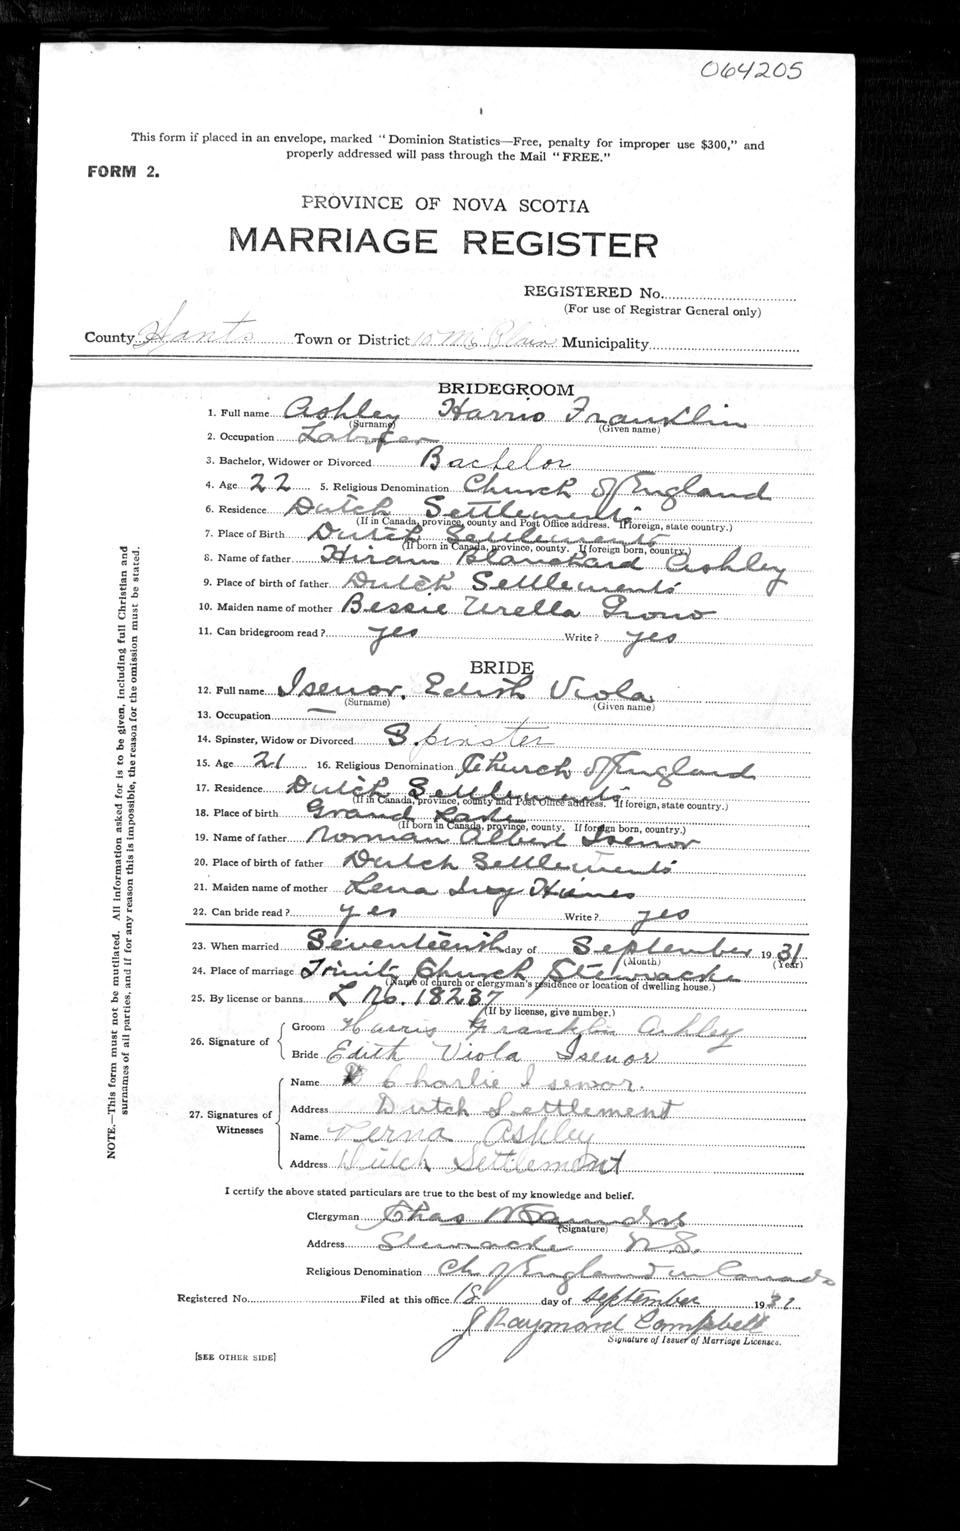 064205
This form if placed in an envelope, marked "Dominion Statistics—Free, penalty for improper use $300," and
properly addressed will pass through the Mail "FREE."
FORM 2.
PROVINCE OF NOVA SCOTIA
MARRIAGE REGISTER
REGISTERED No.
(For use of Registrar General only)
County Hants Town or District Municipality
BRIDEGROOM
1. Full name Ashley Harris Franklin
(Surname) (Given name)
2. Occupation Laborer
3. Bachelor, Widower or Divorced Bachelor
4. Age 22 5. Religious Denomination Church of England
6. Residence Dutch Settlement
(If in Canada, province, county and Post Office address. If foreign, state country.)
7. Place of Birth Dutch Settlement
(If born in Canada, province, county. If foreign born, country.)
8. Name of father Hiram Blanchard Ashley
9. Place of birth of father Dutch Settlement
10. Maiden name of mother Bessie
11. Can bridegroom read? yes Write? yes
BRIDE
12. Full name Isenor, Edith Viola
(Surname) (Given name)
13. Occupation —
14. Spinster, Widow or Divorced Spinster
15. Age 21 16. Religious Denomination Church of England
17. Residence Dutch Settlement
(If in Canada, province, county and Post Office address. If foreign, state country.)
18. Place of birth Grand Lake
(If born in Canada, province, county. If foreign born, country.)
19. Name of father Norman Albert Isenor
20. Place of birth of father Dutch Settlement
21. Maiden name of mother Lena Ivy
22. Can bride read? yes Write? yes
23. When married Seventeenth day of September 1931
(Month) (Year)
24. Place of marriage Trinity Church Stewiacke
(Name of church or clergyman's residence or location of dwelling house.)
25. By license or banns L No. 18237
(If by license, give number.)
26. Signature of
Groom Harris Franklin Ashley
Bride Edith Viola Isenor
27. Signatures of Witnesses
Name Charlie Isenor.
Address Dutch Settlement
Name Verna Ashley
Address Dutch Settlement
I certify the above stated particulars are true to the best of my knowledge and belief.
Clergyman Chas
(Signature)
Address Stewiacke N.S.
Religious Denomination Ch of England in Canada
Registered No. Filed at this office 18 day of September 1931
J Raymond Campbell
Signature of Issuer of Marriage Licenses.
[SEE OTHER SIDE]
NOTE.—This form must not be mutilated. All information asked for is to be given, including full Christian and
surnames of all parties, and if for any reason this is impossible, the reason for the omission must be stated.